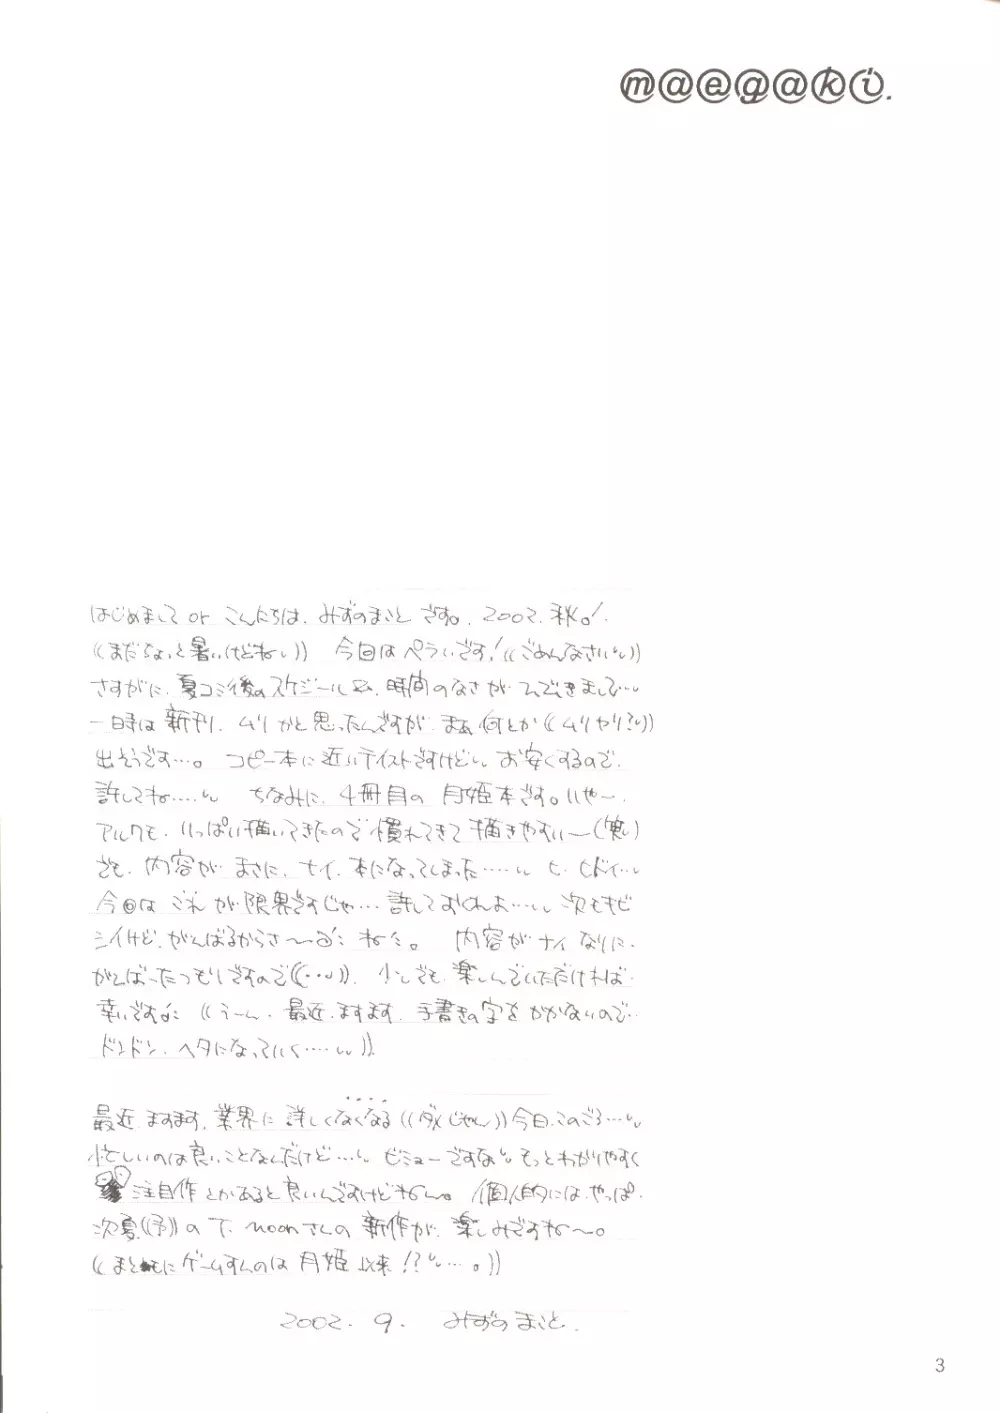 m@e@g@ki.
はじめまして or こんにちは、みずのまことです。2002.秋。!
((まだちょっと暑いけどねい)) 今回はペラいです!((ごめんなさいい))
さすがに、夏コミ後のスケジュールは、時間のなさが、ひびきまして…い
一時は新刊、ムリかと思ったんですが、まぁ何とか((ムリヤリ?い))
出そうです…。コピー本に近いテイストですけどいい お安くするので、
許してね……い ちなみに、4冊目の月姫本です。いや〜、
アルクも、いっぱい描いてきたので慣れてきて描きやすい〜(笑い)
でも、内容が、まさに、ナイ、本になってしまった……い ヒ、ヒドイ…い
今回はこれが限界ですじゃ…許しておくれよ…い 次もキビ
シイけど、がんばるからさ〜 ね。 内容がナイなりに、
がんばったつもりですので((…い))、少しでも、楽しんでいただければ
幸いです ((うーん、最近、ますます、手書きの字をかかないので、
ドンドン、ヘタになっていく……い)).
最近、ますます、業界に詳しくなくなる((ダメじゃん))今日このごろ…い
忙しいのは良いことなんだけど…い ビミョーですないい もっとわかりやすく
注目作とかあると良いんですけどね〜。個人的には、やっぱ、
次夏((予))の T.Moonさんの新作が、楽しみですね〜。
((まともにゲームすんのは月姫以来!?い…。))
2002. 9. みずのまこと.
3